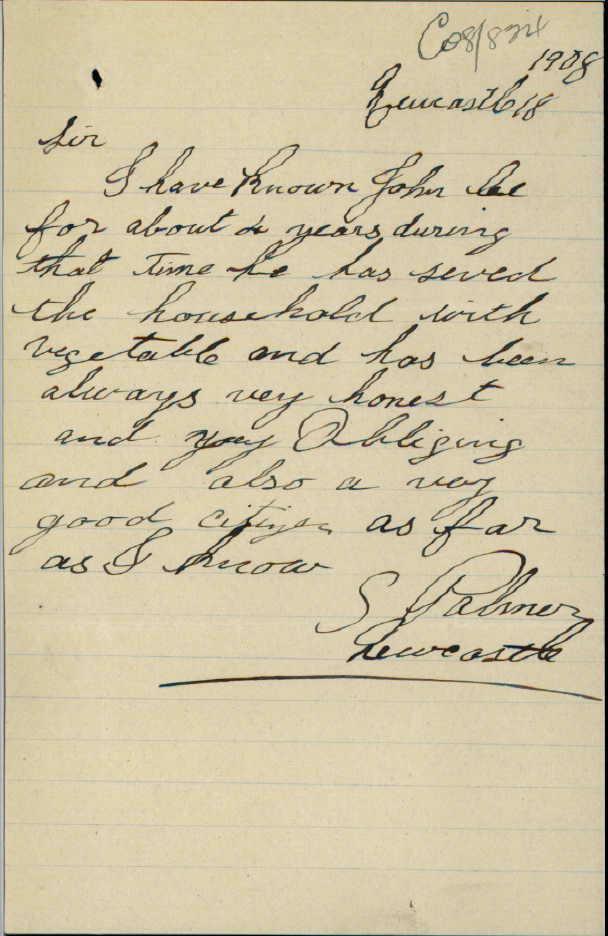 C08/824
1908
Newcastle 18
Sir
I have known John Lee
for about 4 years during
that time he has seved
the household with
vegetable and has been
always vey honest
and vey Obliging
and also a vey
good citizen as far
as I know
S Palmer
Newcastle